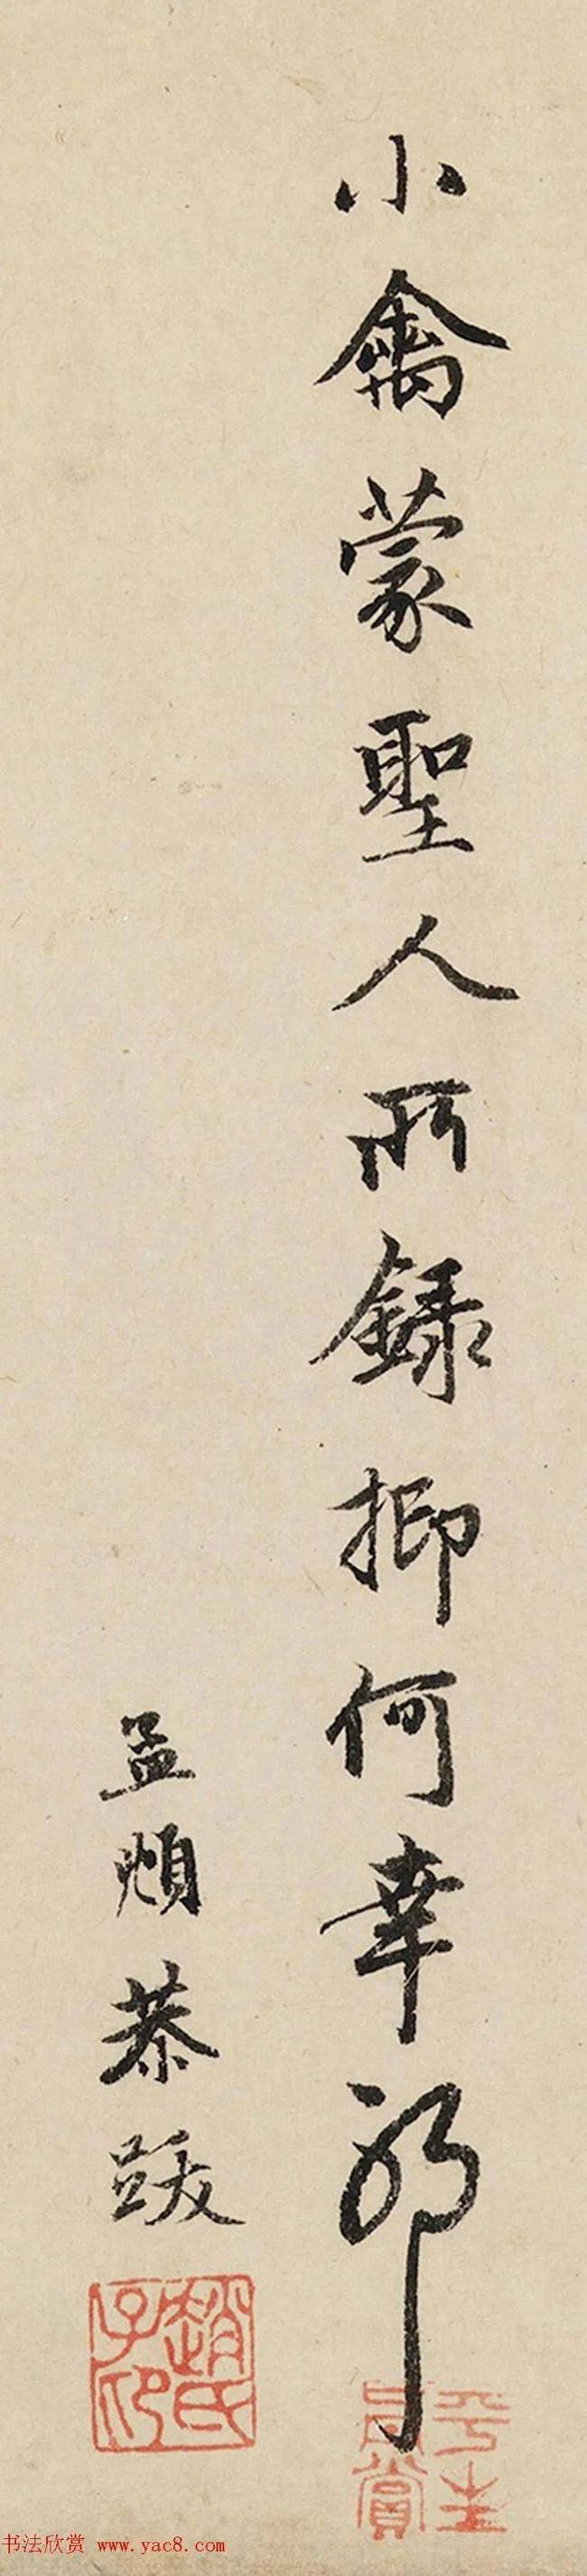 小禽蒙聖人所錄抑何幸耶
孟頫恭跋
趙氏子昂
书法欣赏 www.yac8.com